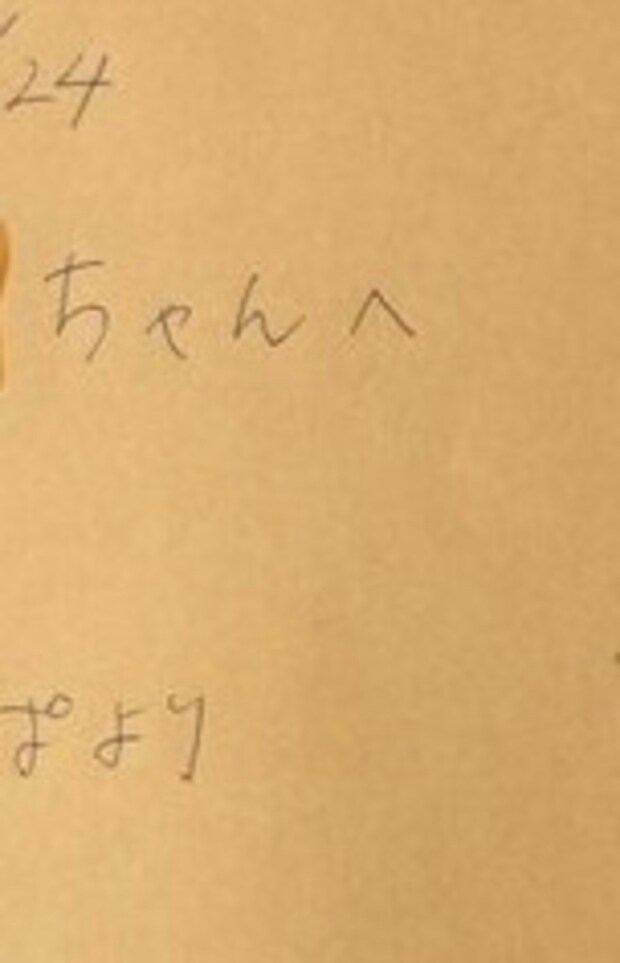 /24
ちゃんへ
ぱより